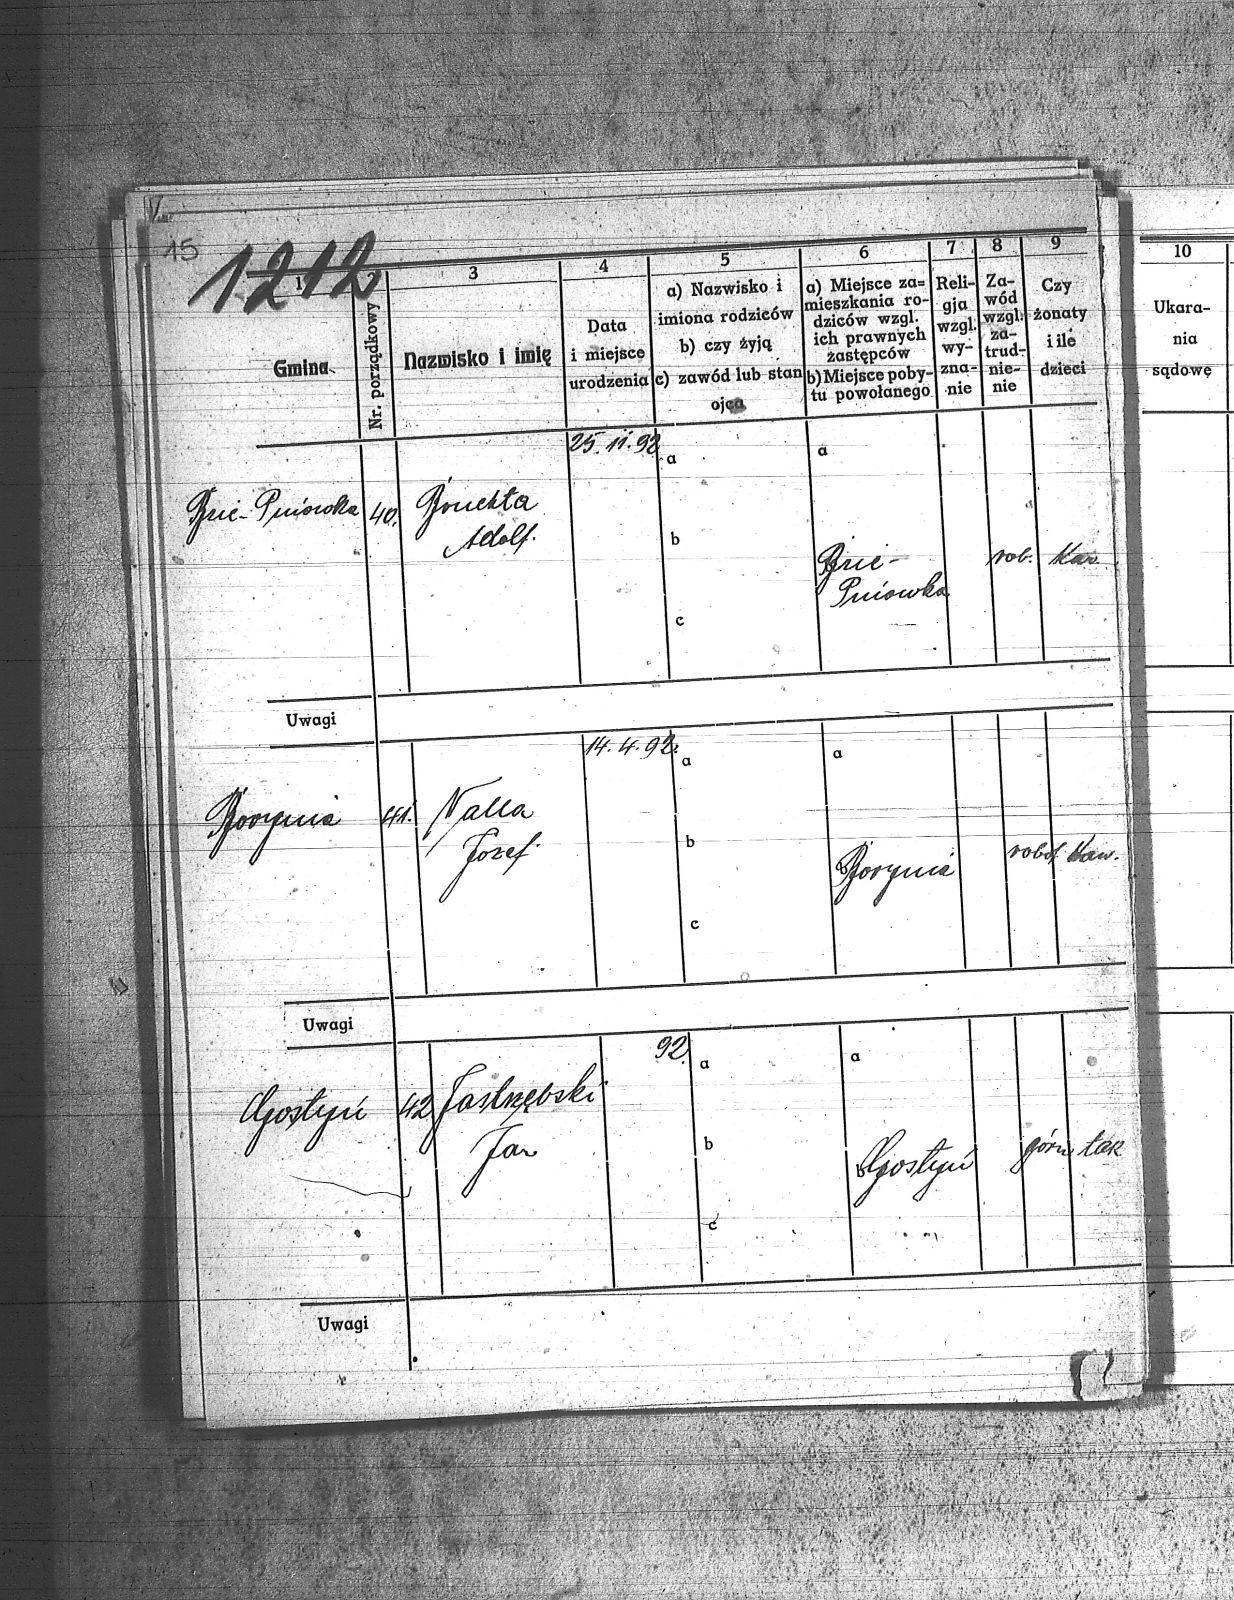 15
1212
1
2
3
4
5
6
7
8
9
10
Gmina
Nr. porządkowy
Nazwisko i imię
Data
i miejsce
urodzenia
a) Nazwisko i
imiona rodziców
b) czy żyją
c) zawód lub stan
ojca
a) Miejsce za=
mieszkania ro-
dziców wzgl.
ich prawnych
zastępców
b) Miejsce poby-
tu powołanego
Reli-
gja
wzgl.
wy-
zna-
nie
Za-
wód
wzgl.
za-
trud-
nie-
nie
Czy
żonaty
i ile
dzieci
Ukara-
nia
sądowe
25.11.92
a
a
Brie-Pniówka 40.
Adolf.
b
Brie-
Pniówka
rob. Kaw.
c
Uwagi
14.4.92.
a
a
Borynia 41. Nalla
Józef.
b
Borynia
robot. Kaw.
c
Uwagi
92.
a
a
Gostyń 42 Jastrzębski
Jan
b
b
Gostyń
górn tak
c
Uwagi